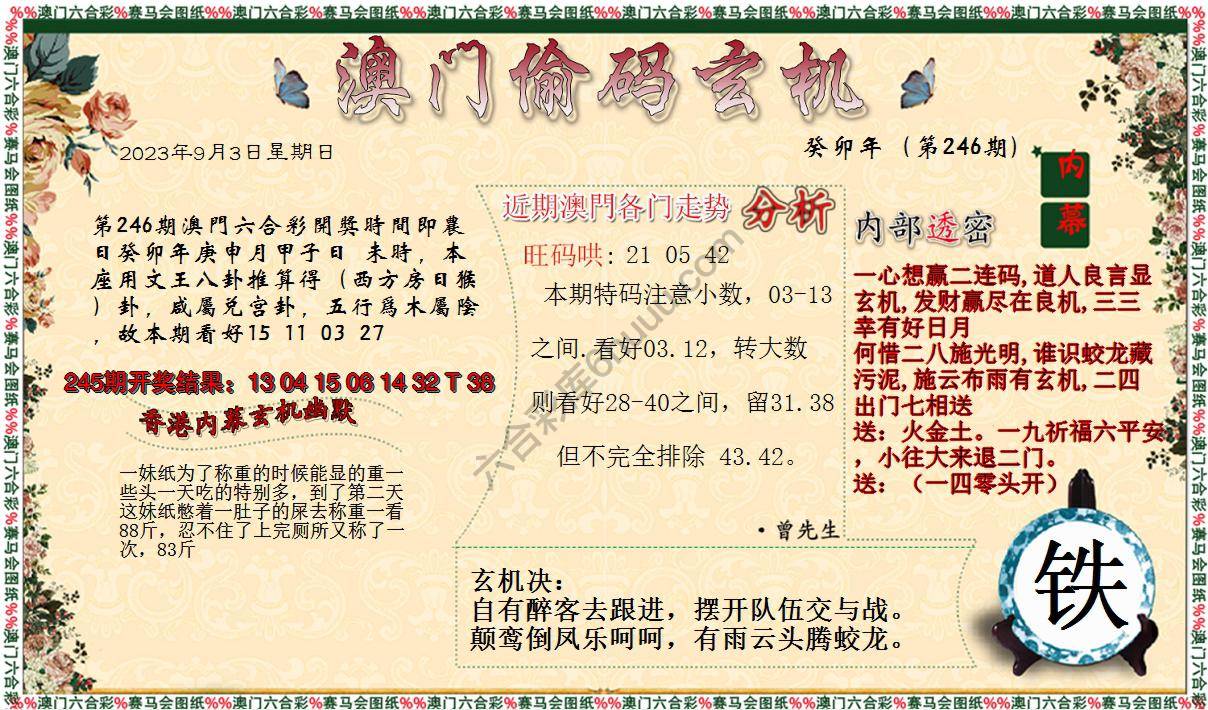 %%澳门六合彩%赛马会图纸%%澳门六合彩%赛马会图纸%%澳门六合彩%赛马会图纸%%澳门六合彩%赛马会图纸%%澳门六合彩%赛马会图纸%%澳门六合彩%赛马会图纸%%
澳门偷码玄机
2023年9月3日星期日
癸卯年（第246期）
内幕
第246期澳門六合彩開獎時間即農
日癸卯年庚申月甲子日 未時，本
座用文王八卦推算得（西方房日猴
）卦，咸屬兑宫卦，五行爲木屬陰
，故本期看好15 11 03 27
245期开奖结果：13 04 15 06 14 32 T 38
香港内幕玄机幽默
一妹纸为了称重的时候能显的重一
些头一天吃的特别多，到了第二天
这妹纸憋着一肚子的屎去称重一看
88斤，忍不住了上完厕所又称了一
次，83斤
近期澳門各门走势 分析
旺码哄: 21 05 42
本期特码注意小数，03-13
之间.看好03.12，转大数
则看好28-40之间，留31.38
但不完全排除 43.42。
·曾先生
内部透密
一心想赢二连码,道人良言显
玄机,发财赢尽在良机,三三
幸有好日月
何惜二八施光明,谁识蛟龙藏
污泥,施云布雨有玄机,二四
出门七相送
送：火金土。一九祈福六平安
，小往大来退二门。
送：（一四零头开）
玄机决：
自有醉客去跟进，摆开队伍交与战。
颠鸾倒凤乐呵呵，有雨云头腾蛟龙。
铁
%%澳门六合彩%赛马会图纸%%澳门六合彩%赛马会图纸%%澳门六合彩%赛马会图纸%%澳门六合彩%赛马会图纸%%澳门六合彩%赛马会图纸%%澳门六合彩%赛马会图纸%%